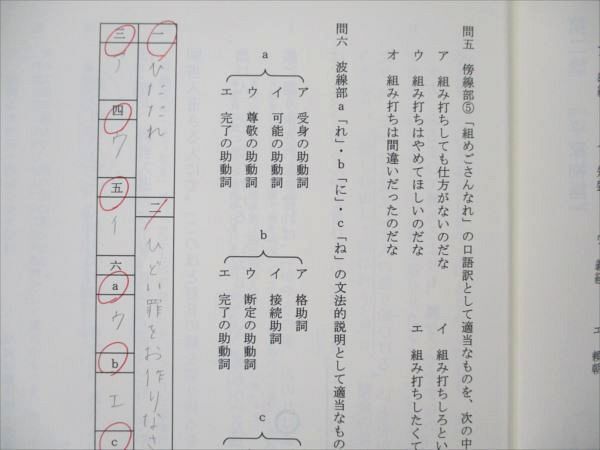 問五 傍線部⑤「組めごさんなれ」の口語訳として適当なものを、次の中
ア 組み打ちしても仕方がないのだな
イ 組み打ちしろとい
ウ 組み打ちはやめてほしいのだな
エ 組み打ちしたくて
オ 組み打ちは間違いだったのだな
問六 波線部a「れ」・b「に」・c「ね」の文法的説明として適当なもの
a
ア 受身の助動詞
イ 可能の助動詞
ウ 尊敬の助動詞
エ 完了の助動詞
b
ア 格助詞
イ 接続助詞
ウ 断定の助動詞
エ 完了の助動詞
c
一 ひたたれ
二 ひどい罪をお作りなさ
三 ア
四 ウ
五 イ
六
a ウ
b エ
c